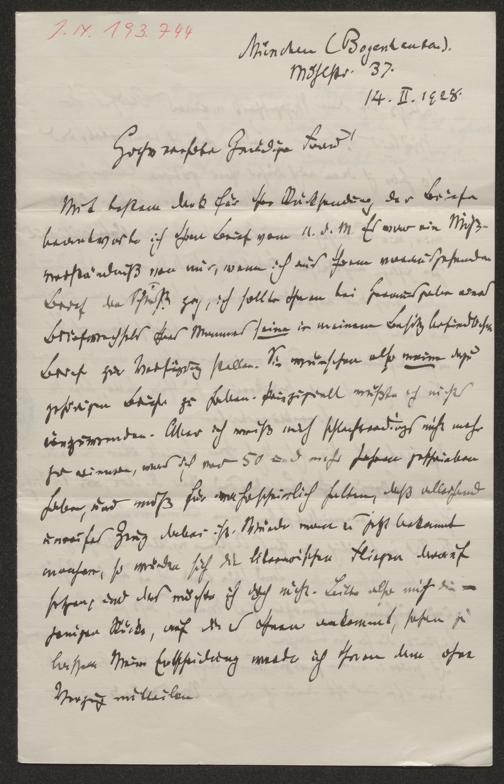 I. N. 193.744
München (Bogenhausen).
Möhlstr. 37.
14. II. 1928.
Hochverehrte Gnädige Frau!
Mit bestem Dank für Ihre Rücksendung der Briefe
beantworte ich Ihren Brief vom 11. d. M. Es war ein Miß-
verständniß von mir, wenn ich aus Ihrem vorausgehenden
Brief den Schluß zog, ich sollte Ihnen bei Herausgabe eines
Briefwechsels Ihres Mannes seine in meinem Besitz befindlichen
Briefe zur Verfügung stellen. Sie wünschen also meine dazu
gehörigen Briefe zu haben. Prinzipiell wüßte ich nichts
einzuwenden. Aber ich weiß mich schlechterdings nicht mehr
zu erinnern, was ich vor 50 und mehr Jahren geschrieben
habe, und muß für wahrscheinlich halten, daß allerhand
unreifes Zeug dabei ist. Würde man es jetzt bekannt
machen, so würden sich die literarischen Fliegen darauf
setzen, und das möchte ich doch nicht. Bitte also mich die-
jenigen Stücke, auf die es Ihnen ankommt, sehen zu
lassen. Meine Entscheidung werde ich Ihnen dann ohne
Verzug mitteilen.